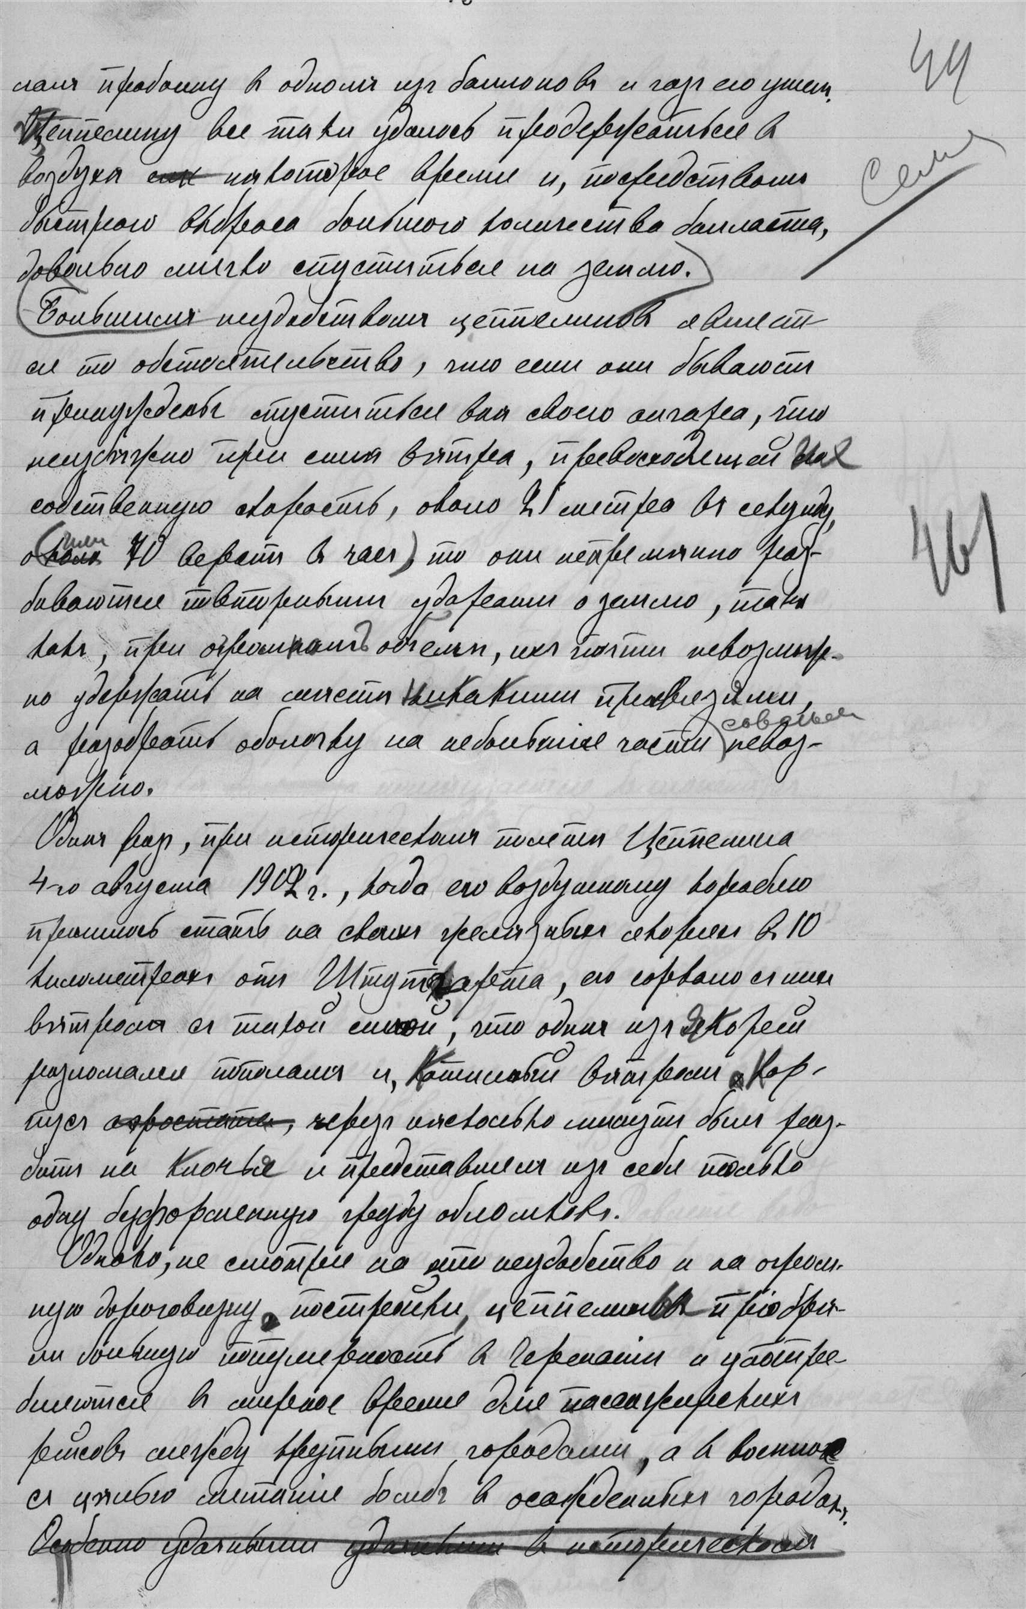 44
лалъ пробоину въ одномъ изъ баллоновъ и газъ его ушелъ.
Цеппелину все таки удалось продержаться въ
Семья
воздухѣ нѣкоторое время и, посредствомъ
быстраго выброса большого количества балласта,
довольно мягко спуститься на землю.
Большимъ неудобствомъ цеппелиновъ являет-
ся то обстоятельство, что если они бываютъ
принуждены спуститься внѣ своего ангара, что
неизбѣжно при силѣ вѣтра, превосходящей ихъ
собственную скорость, около 21 метра въ секунду,
461
(или 70 верстъ въ часъ) то они непремѣнно раз-
биваются повторными ударами о землю, такъ
какъ, при огромномъ объемѣ, ихъ почти невозмож-
но удержать на мѣстѣ никакими привязями,
совсѣмъ
а разобрать оболочку на небольшіе части невоз-
можно.
Одинъ разъ, при историческомъ полетѣ Цеппелина
4-го августа 1908 г., когда его воздушному кораблю
пришлось стать на своихъ желѣзныхъ якоряхъ въ 10
километрахъ отъ Штутгарта, его сорвало съ нихъ
вѣтромъ съ такой силой, что одинъ изъ якорей
разломался пополамъ и, катимый вѣтромъ, кор-
пусъ аэростата, черезъ нѣсколько минутъ былъ раз-
битъ на клочья и представлялъ изъ себя только
одну безформенную груду обломковъ.
Однако, не смотря на это неудобство и на огром-
ную дороговизну постройки, цеппелины пріобрѣ-
ли большую популярность въ Германіи и употре-
бляются въ мирное время для пассажирскихъ
рейсовъ между крупными городами, а въ военное
съ цѣлью метанія бомбъ въ осажденныхъ городахъ.
Особенно удачными удачными въ историческомъ